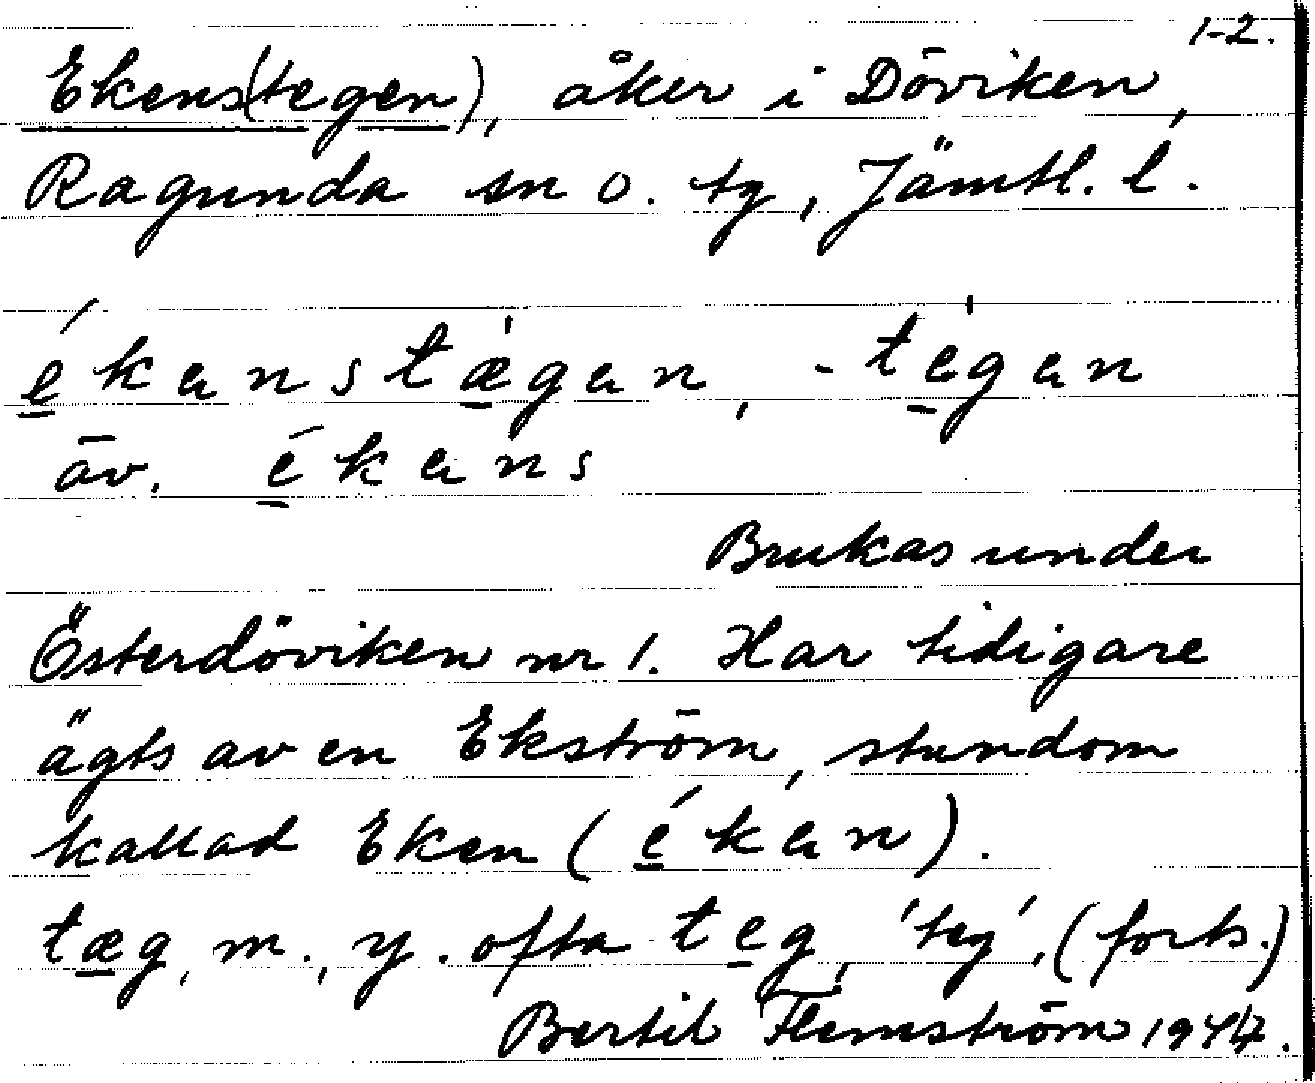 1-2.
Ekens(tegen), åker i Döviken,
Ragunda sn o. tg, Jämtl. l.
ékanstægan, -tegan
äv. ékans
Brukas under
Österdöviken nr 1. Har tidigare
ägts av en Ekström, stundom
kallad Eken (ékan).
tæg, m., y. ofta teg, 'teg', (forts.)
Bertil Flemström 1944.